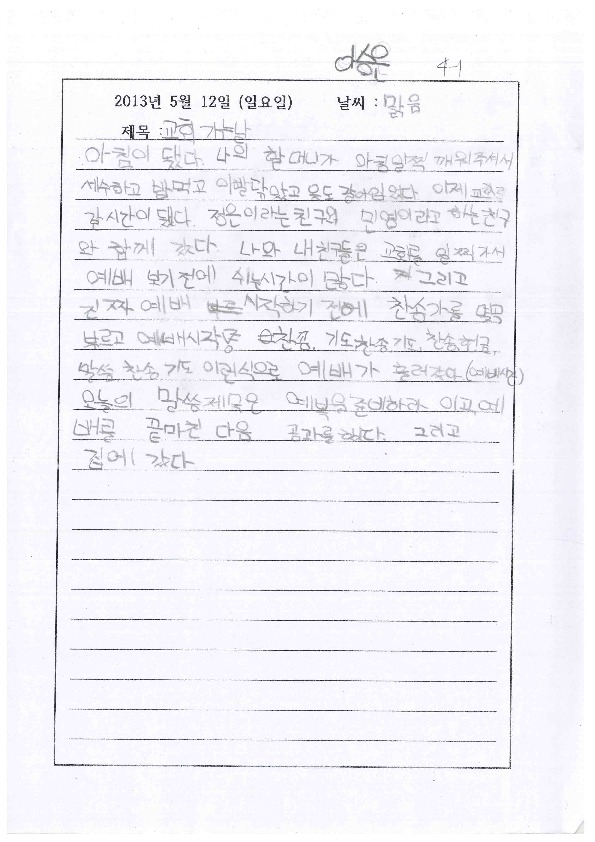 이승윤 4-1
2013년 5월 12일 (일요일) 날씨 : 맑음
제목 : 교회 가는날
아침이 됐다. 나의 할머니가 아침일찍 깨워주셔서
세수하고 밥먹고 이빨닦았고 옷도 갈아입었다 이제 교회로
갈시간이 됐다. 정은이라는친구와 민영이라고 하는친구
와 함께 갔다. 나와 내친구들은 교회를 일찌가서
예배 보기전에 쉬는시간이 많다. 그리고
진짜 예배 시작하기 전에 찬송가를
부르고 예배시작종 찬송, 기도찬송기도, 찬송헌금,
말씀 찬송 기도 이런식으로 예배가 흘러갔다 (예배시)
오늘의 말씀제목은 예복을준비하라 이고,예
배를 끝마친 다음 공과를했다. 그리고
집에 갔다